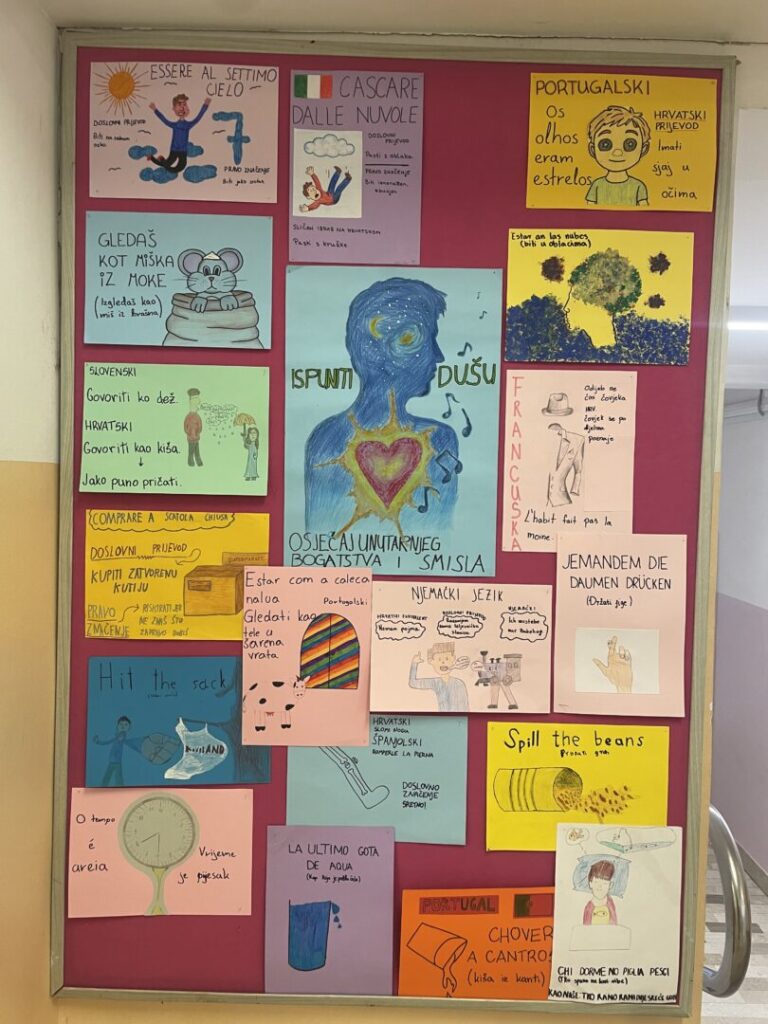 ESSERE AL SETTIMO
CIELO
DOSLOVNI PRIJEVOD
Biti na sedmom
nebu
7
PRAVO ZNAČENJE
Biti jako sretan
CASCARE
DALLE NUVOLE
DOSLOVNI
PRIJEVOD
Pasti s oblaka
PRAVO ZNAČENJE
Biti iznenađen,
SLIČAN IZRAZ NA HRVATSKOM
Pasti s kruške
PORTUGALSKI
Os
olhos
eram
estrelos
HRVATSKI
PRIJEVOD
Imati
sjaj u
očima
GLEDAŠ
KOT MIŠKA
IZ MOKE
(Izgledaš kao
miš iz brašna)
Estar an las nubes
(biti u oblacima)
ISPUNTI DUŠU
OSJEĆAJ UNUTARNJEG
BOGATSTVA I SMISLA
SLOVENSKI
Govoriti ko dež.
HRVATSKI
Govoriti kao kiša.
Jako puno pričati.
FRANCUSKA
Odijelo ne
čini čovjeka
INV.
čovjek se po
djelima
poznaje
L'habit fait pas la
moine.
COMPRARE A SCATOLA CHIUSA
DOSLOVNI PRIJEVOD
KUPITI ZATVORENU
KUTIJU
PRAVO
ZNAČENJE
RISKIRATI JER
NE ZNAŠ ŠTO
ZAPRAVO DOBIŠ
Estar com a caleca
nalua
Portogalski
Gledati kao
tele u
šarena
vrata
NJEMAČKI JEZIK
HRVATSKI
Nemam pojma.
DOSLOVNI PRIJEVOD
Razumijem
samo željeznička
stanica
NJEMAČKI
Ich verstehe
nur Bahnhof
JEMANDEM DIE
DAUMEN DRÜCKEN
(Držati fige)
Hit the sack
HRVATSKI
SLOMI NOGU
ŠPANJOLSKI
ROMPERLE LA PIERNA
DOSLOVNO
ZNAČENJE
SRETNO!
Spill the beans
Prosuti grah
O tempo
é
areia
Vrijeme
je pijesak
LA ULTIMO GOTA
DE AQUA
PORTUGAL
CHOVER
A CANTROS
(kiša iz kanti)
CHI DORME NO PIGLIA PESCI
(Tko spava ne lovi ribe)
KAO NAŠE: TKO RANO RANI DVIJE SREĆE GRABI